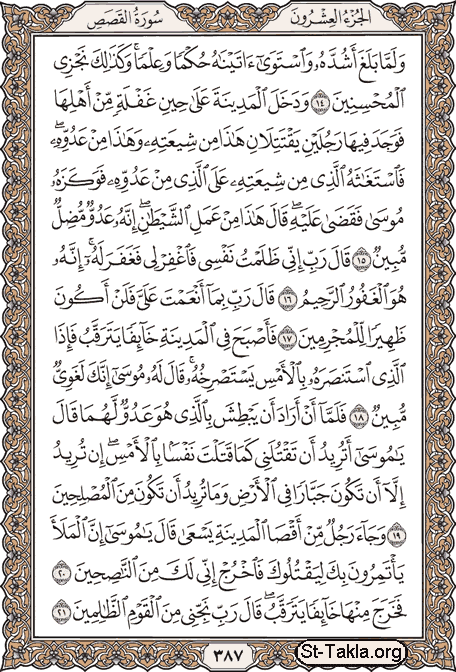 الجُزْءُ العِشْرُونَ سُورَةُ القَصَصِ
وَلَمَّا بَلَغَ أَشُدَّهُۥ وَٱسْتَوَىٰٓ ءَاتَيْنَٰهُ حُكْمًا وَعِلْمًا ۚ وَكَذَٰلِكَ نَجْزِى
ٱلْمُحْسِنِينَ ١٤ وَدَخَلَ ٱلْمَدِينَةَ عَلَىٰ حِينِ غَفْلَةٍ مِّنْ أَهْلِهَا
فَوَجَدَ فِيهَا رَجُلَيْنِ يَقْتَتِلَانِ هَٰذَا مِن شِيعَتِهِۦ وَهَٰذَا مِنْ عَدُوِّهِۦ ۖ
فَٱسْتَغَٰثَهُ ٱلَّذِى مِن شِيعَتِهِۦ عَلَى ٱلَّذِى مِنْ عَدُوِّهِۦ فَوَكَزَهُۥ
مُوسَىٰ فَقَضَىٰ عَلَيْهِ ۖ قَالَ هَٰذَا مِنْ عَمَلِ ٱلشَّيْطَٰنِ ۖ إِنَّهُۥ عَدُوٌّ مُّضِلٌّ
مُّبِينٌ ١٥ قَالَ رَبِّ إِنِّى ظَلَمْتُ نَفْسِى فَٱغْفِرْ لِى فَغَفَرَ لَهُۥٓ ۚ إِنَّهُۥ
هُوَ ٱلْغَفُورُ ٱلرَّحِيمُ ١٦ قَالَ رَبِّ بِمَآ أَنْعَمْتَ عَلَىَّ فَلَنْ أَكُونَ
ظَهِيرًا لِّلْمُجْرِمِينَ ١٧ فَأَصْبَحَ فِى ٱلْمَدِينَةِ خَآئِفًا يَتَرَقَّبُ فَإِذَا
ٱلَّذِى ٱسْتَنصَرَهُۥ بِٱلْأَمْسِ يَسْتَصْرِخُهُۥ ۚ قَالَ لَهُۥ مُوسَىٰٓ إِنَّكَ لَغَوِىٌّ
مُّبِينٌ ١٨ فَلَمَّآ أَنْ أَرَادَ أَن يَبْطِشَ بِٱلَّذِى هُوَ عَدُوٌّ لَّهُمَا قَالَ
يَٰمُوسَىٰٓ أَتُرِيدُ أَن تَقْتُلَنِى كَمَا قَتَلْتَ نَفْسًۢا بِٱلْأَمْسِ ۖ إِن تُرِيدُ
إِلَّآ أَن تَكُونَ جَبَّارًا فِى ٱلْأَرْضِ وَمَا تُرِيدُ أَن تَكُونَ مِنَ ٱلْمُصْلِحِينَ
١٩ وَجَآءَ رَجُلٌ مِّنْ أَقْصَا ٱلْمَدِينَةِ يَسْعَىٰ قَالَ يَٰمُوسَىٰٓ إِنَّ ٱلْمَلَأَ
يَأْتَمِرُونَ بِكَ لِيَقْتُلُوكَ فَٱخْرُجْ إِنِّى لَكَ مِنَ ٱلنَّٰصِحِينَ ٢٠
فَخَرَجَ مِنْهَا خَآئِفًا يَتَرَقَّبُ ۖ قَالَ رَبِّ نَجِّنِى مِنَ ٱلْقَوْمِ ٱلظَّٰلِمِينَ ٢١
٣٨٧
St-Takla.org